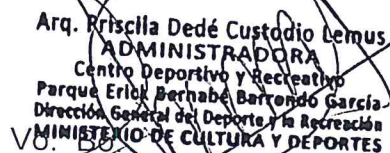 Arq. Priscila Dedé Custodio Lemus
ADMINISTRADORA
Centro Deportivo y Recreativo
Parque Erick Bernabé Barrondo García
Dirección General del Deporte y la Recreación
Vo. Bo. MINISTERIO DE CULTURA Y DEPORTES